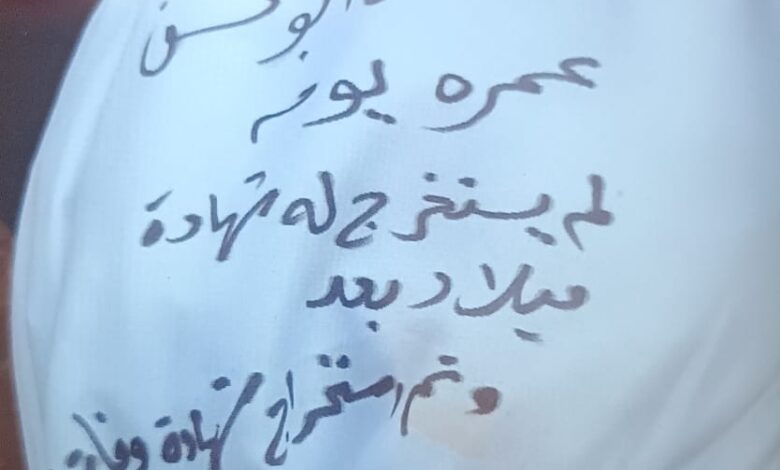 ابو حسن
عمره يوم
لم يستخرج له شهادة
ميلاد بعد
وتم استخراج شهادة وفاة